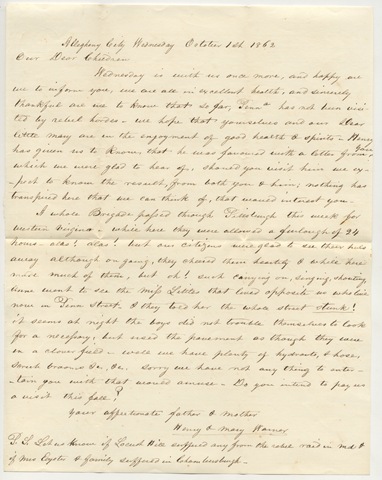 Allegheny City Wednesday October 1st 1862
Our Dear Children
Wednesday is with us once more, and happy are
we to inform you, we are all in excellent health, and sincerely
thankful are we to know that so far, has not been visit
ed by rebel hordes - we hope that yourselves and our dear
little may are in the enjoyment of good health & spirits - Henry
has given us to know, that he was favoured with a letter from you
which we were glad to hear of, should you visit him we ex-
pect to know the result, from both you & him; nothing has
transpired here that we can think of, that would interest you -
A whole Brigade passed through Pittsburgh this week for
western Virginia - while here they were allowed a furlough of 24
hours - alas! alas! but our citizens were glad to see their heels
away although on going, they cheered them heartily & while here
made much of them, but oh! such carrying on, singing, shouting,
Anne went to see the Miss that lived opposite us who live
now in Penn Street, & they told her the whole street stunk!
it seems at night the boys did not trouble themselves to look
for a necessary, but used the pavement as though they were
in a clover field - well we have plenty of hydrants, & hose,
Scrub brooms &c, &c, Sorry we have not any thing to enter-
tain you with that would amuse - Do you intend to pay us
a visit this fall?
Your affectionate father & Mother
Henry & Mary Warner
P.S. Let us know if Locust Hill suffered any from the rebel raid in md &
if Mrs Oyster & family suffered in Chambersburgh -